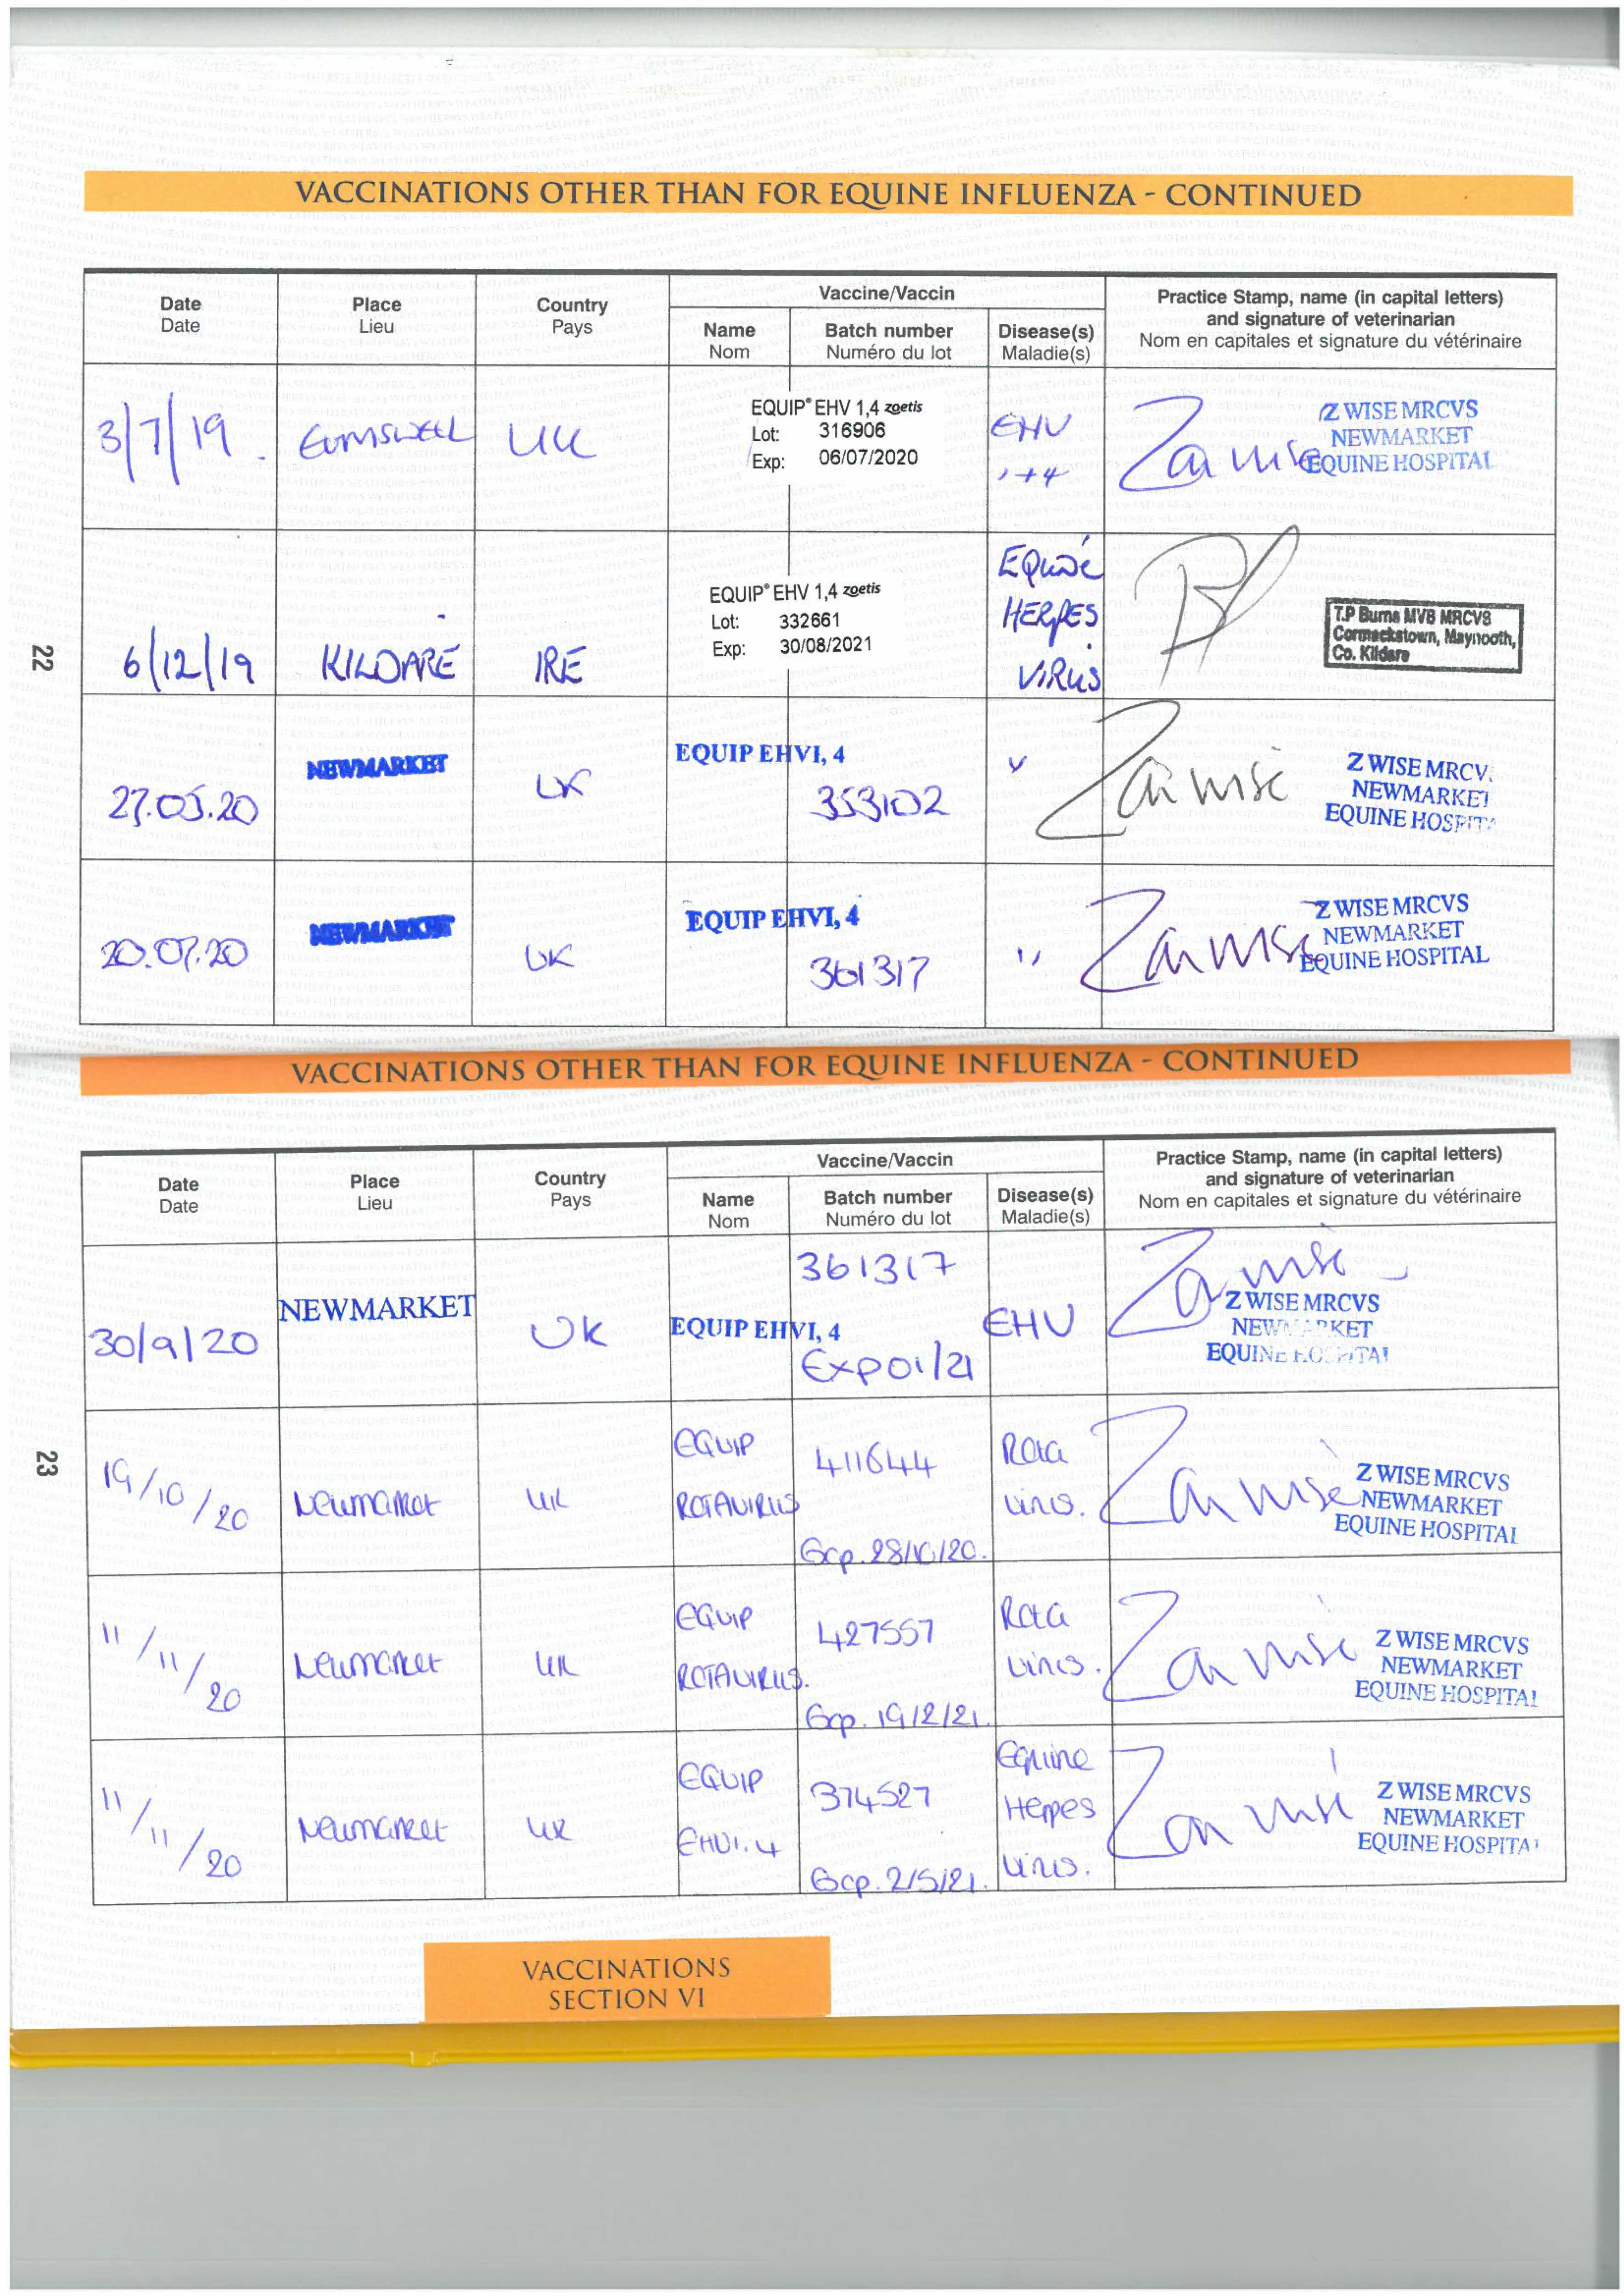 VACCINATIONS OTHER THAN FOR EQUINE INFLUENZA - CONTINUED
Date
Date
Place
Lieu
Country
Pays
Vaccine/Vaccin
Name
Nom
Batch number
Numéro du lot
Disease(s)
Maladie(s)
Practice Stamp, name (in capital letters)
and signature of veterinarian
Nom en capitales et signature du vétérinaire
3/7/19.
UK
EQUIP® EHV 1,4 zoetis
Lot: 316906
Exp: 06/07/2020
EHV
1+4
Z WISE MRCVS
NEWMARKET
EQUINE HOSPITAL
22
6/12/19
KILDARE
IRE
EQUIP® EHV 1,4 zoetis
Lot: 332661
Exp: 30/08/2021
HERPES
VIRUS
T.P Burns MVB MRCVS
Cormackstown, Maynooth,
Co. Kildare
27.05.20
NEWMARKET
UK
EQUIP EHV1, 4
353102
Z WISE MRCV
NEWMARKET
EQUINE HOSPITA
20.07.20
NEWMARKET
UK
EQUIP EHV1, 4
361317
"
Z WISE MRCVS
NEWMARKET
EQUINE HOSPITAL
VACCINATIONS OTHER THAN FOR EQUINE INFLUENZA - CONTINUED
Date
Date
Place
Lieu
Country
Pays
Vaccine/Vaccin
Name
Nom
Batch number
Numéro du lot
Disease(s)
Maladie(s)
Practice Stamp, name (in capital letters)
and signature of veterinarian
Nom en capitales et signature du vétérinaire
30/9/20
NEWMARKET
UK
EQUIP EHV1, 4
361317
Exp 01/21
EHV
Z WISE MRCVS
NEWMARKET
EQUINE HOSPITAL
23
19/10/20
Newmarket
UK
EQUIP
ROTAVIRUS
411644
Exp. 28/10/20.
Rota
virus.
Z WISE MRCVS
NEWMARKET
EQUINE HOSPITAL
11/11/20
Newmarket
UK
EQUIP
ROTAVIRUS.
427557
Exp. 19/2/21.
Rota
virus.
Z WISE MRCVS
NEWMARKET
EQUINE HOSPITAL
11/11/20
Newmarket
UK
EQUIP
EHV1.4
374527
Exp. 2/5/21.
Equine
Herpes
virus.
Z WISE MRCVS
NEWMARKET
EQUINE HOSPITAL
VACCINATIONS
SECTION VI